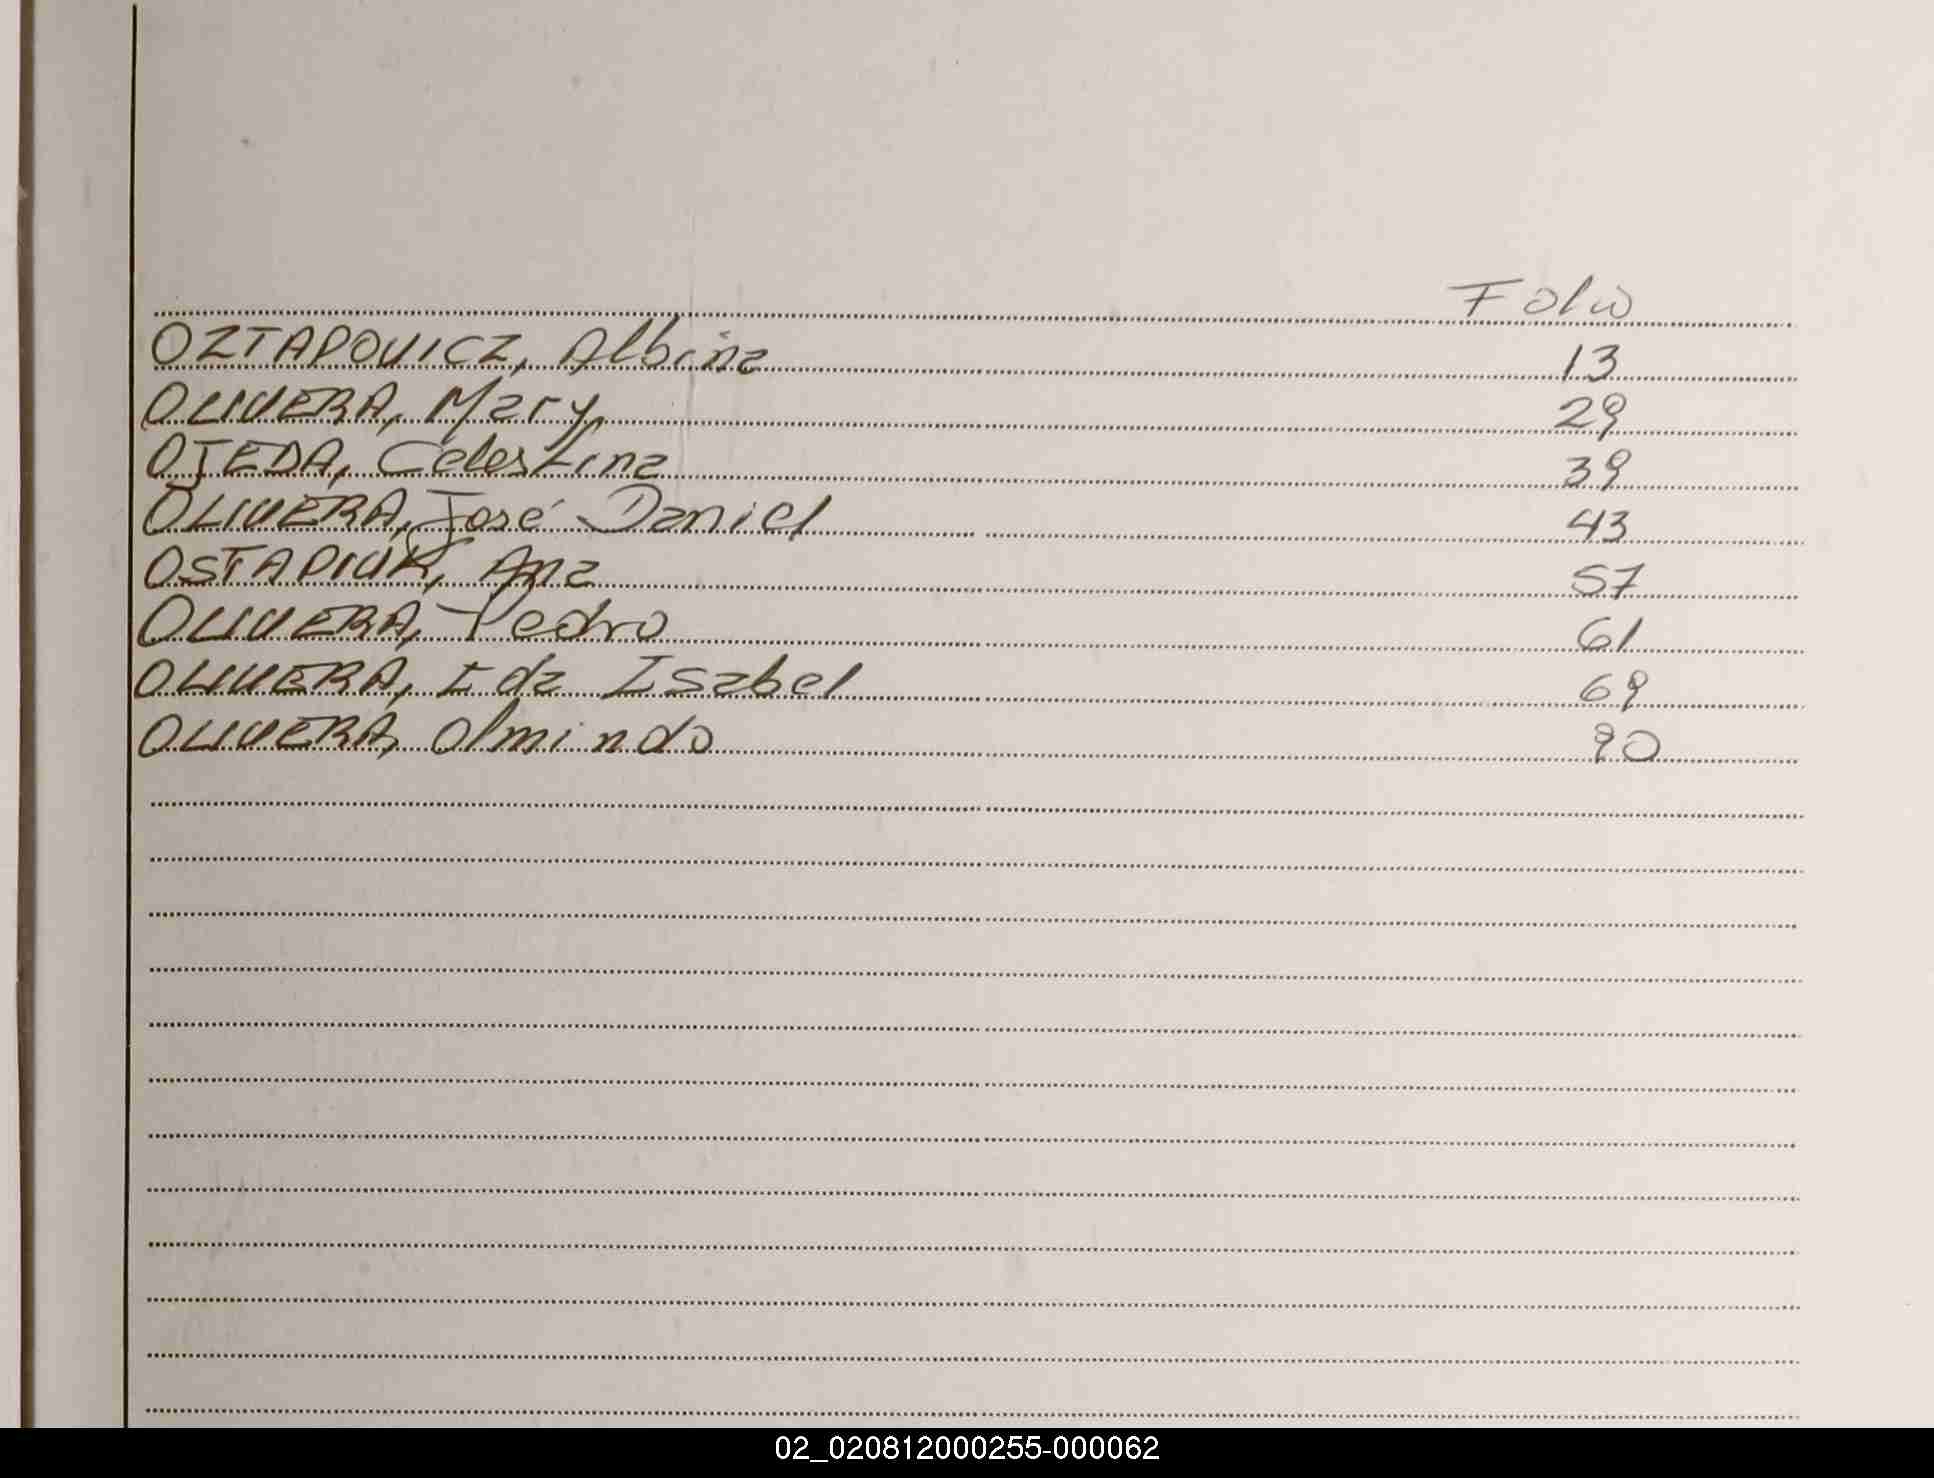 Folio
OZTAPOVICZ, Albina 13
OLIVERA, Mary 29
OJEDA, Celestina 39
OLIVERA, José Daniel 43
OSTAPIUK, Ana 57
OLIVERA, Pedro 61
OLIVERA, Ida Isabel 69
OLIVERA, Olmindo 90
02_020812000255-000062